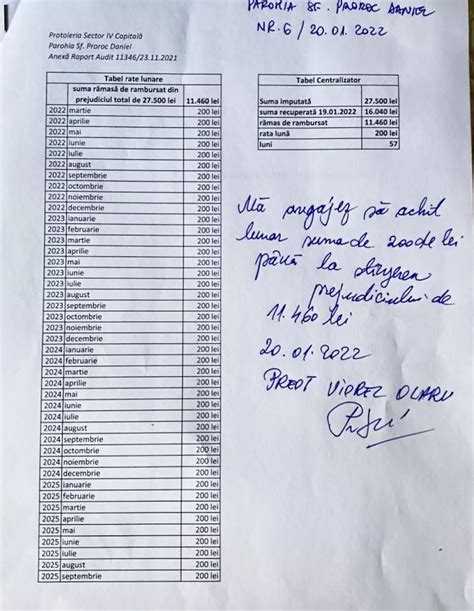 PAROHIA SF. PROROC DANIEL
NR. 6 / 20.01.2022
Protoieria Sector IV Capitală
Parohia Sf. Proroc Daniel
Anexă Raport Audit 11346/23.11.2021
Tabel rate lunare
suma rămasă de rambursat din
prejudiciul total de 27.500 lei 11.460 lei
2022 martie 200 lei
2022 aprilie 200 lei
2022 mai 200 lei
2022 iunie 200 lei
2022 iulie 200 lei
2022 august 200 lei
2022 septembrie 200 lei
2022 octombrie 200 lei
2022 noiembrie 200 lei
2022 decembrie 200 lei
2023 ianuarie 200 lei
2023 februarie 200 lei
2023 martie 200 lei
2023 aprilie 200 lei
2023 mai 200 lei
2023 iunie 200 lei
2023 iulie 200 lei
2023 august 200 lei
2023 septembrie 200 lei
2023 octombrie 200 lei
2023 noiembrie 200 lei
2023 decembrie 200 lei
2024 ianuarie 200 lei
2024 februarie 200 lei
2024 martie 200 lei
2024 aprilie 200 lei
2024 mai 200 lei
2024 iunie 200 lei
2024 iulie 200 lei
2024 august 200 lei
2024 septembrie 200 lei
2024 octombrie 200 lei
2024 noiembrie 200 lei
2024 decembrie 200 lei
2025 ianuarie 200 lei
2025 februarie 200 lei
2025 martie 200 lei
2025 aprilie 200 lei
2025 mai 200 lei
2025 iunie 200 lei
2025 iulie 200 lei
2025 august 200 lei
2025 septembrie 200 lei
Tabel Centralizator
Suma imputată 27.500 lei
suma recuperată 19.01.2022 16.040 lei
rămas de rambursat 11.460 lei
rata lună 200 lei
luni 57
Mă angajez să achit
lunar suma de 200 de lei
până la stingerea
prejudiciului de
11.460 lei
20.01.2022
PREOT VIOREL OLARU